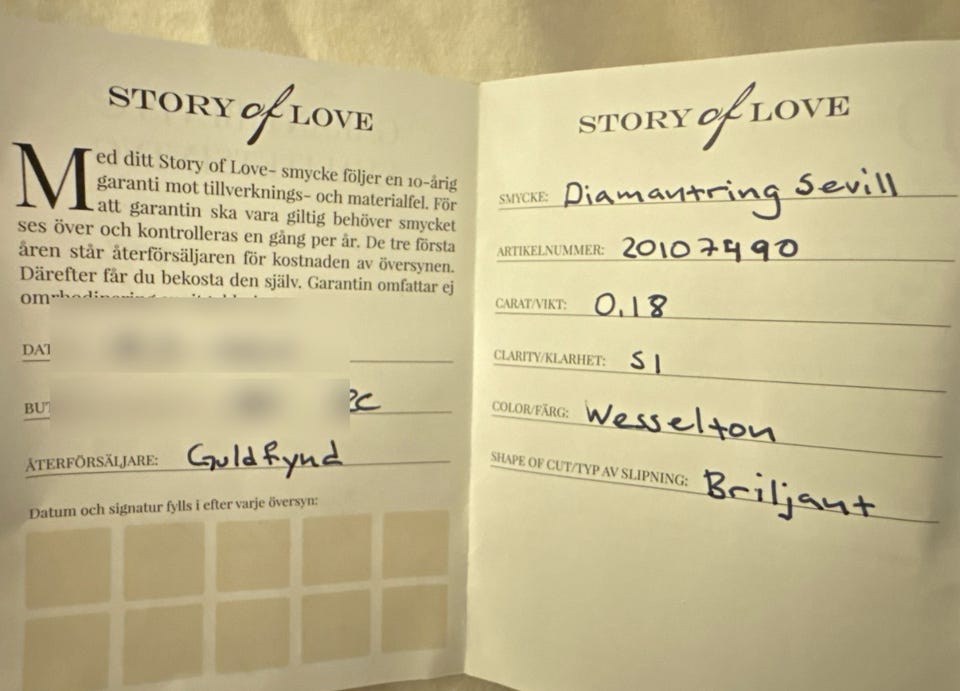 STORY of LOVE
Med ditt Story of Love- smycke följer en 10-årig
garanti mot tillverknings- och materialfel. För
att garantin ska vara giltig behöver smycket
ses över och kontrolleras en gång per år. De tre första
åren står återförsäljaren för kostnaden av översynen.
Därefter får du bekosta den själv. Garantin omfattar ej
ÅTERFÖRSÄLJARE: Guldfynd
Datum och signatur fylls i efter varje översyn:
STORY of LOVE
SMYCKE: Diamantring Sevill
ARTIKELNUMMER: 20107490
CARAT/VIKT: 0.18
CLARITY/KLARHET: SI
COLOR/FÄRG: Wesselton
SHAPE OF CUT/TYP AV SLIPNING: Briljant